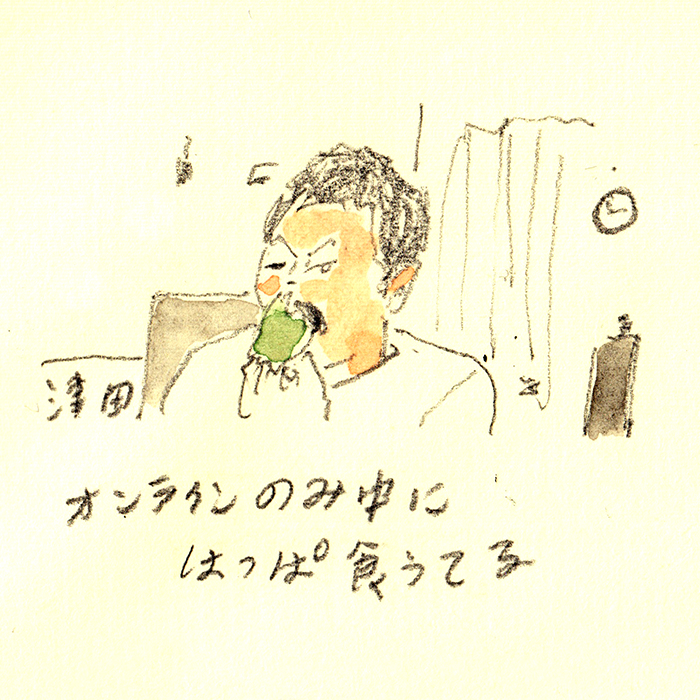 津田
オンラインのみ中に
はっぱ食うてる